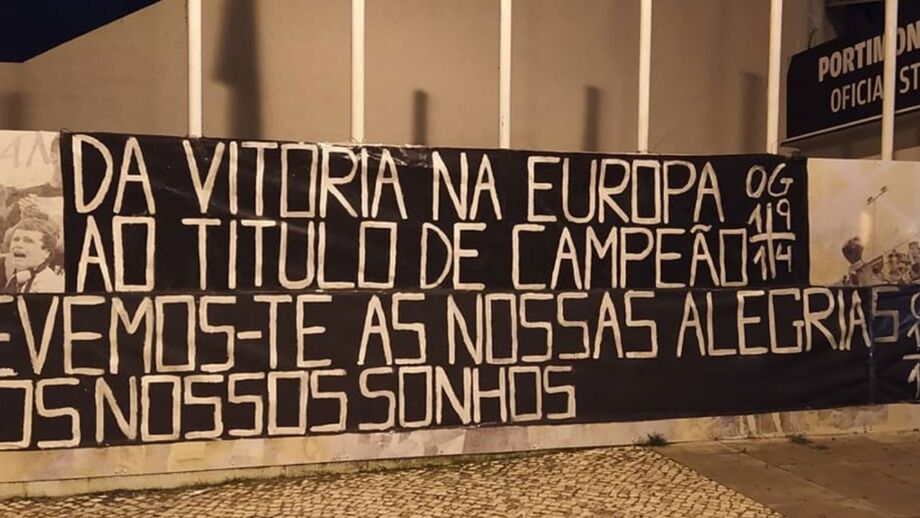 PORTIMON
OFICIAL ST
DA VITÓRIA NA EUROPA OG
AO TITULO DE CAMPEÃO 19 14
EVEMOS-TE AS NOSSAS ALEGRIAS
OS NOSSOS SONHOS